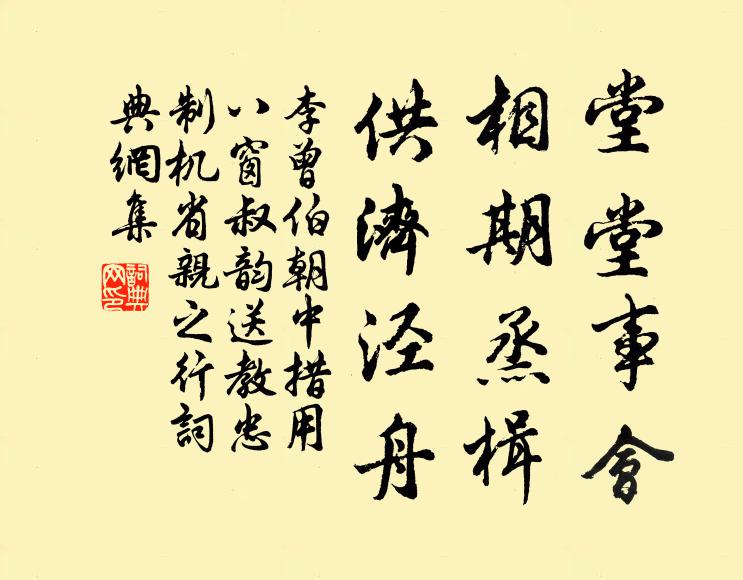 堂堂事會
相期烝楫
供濟泾舟
李曾伯朝中措用
八窗叔韵送教忠
制机省親之行詞
典網集
詞典網印